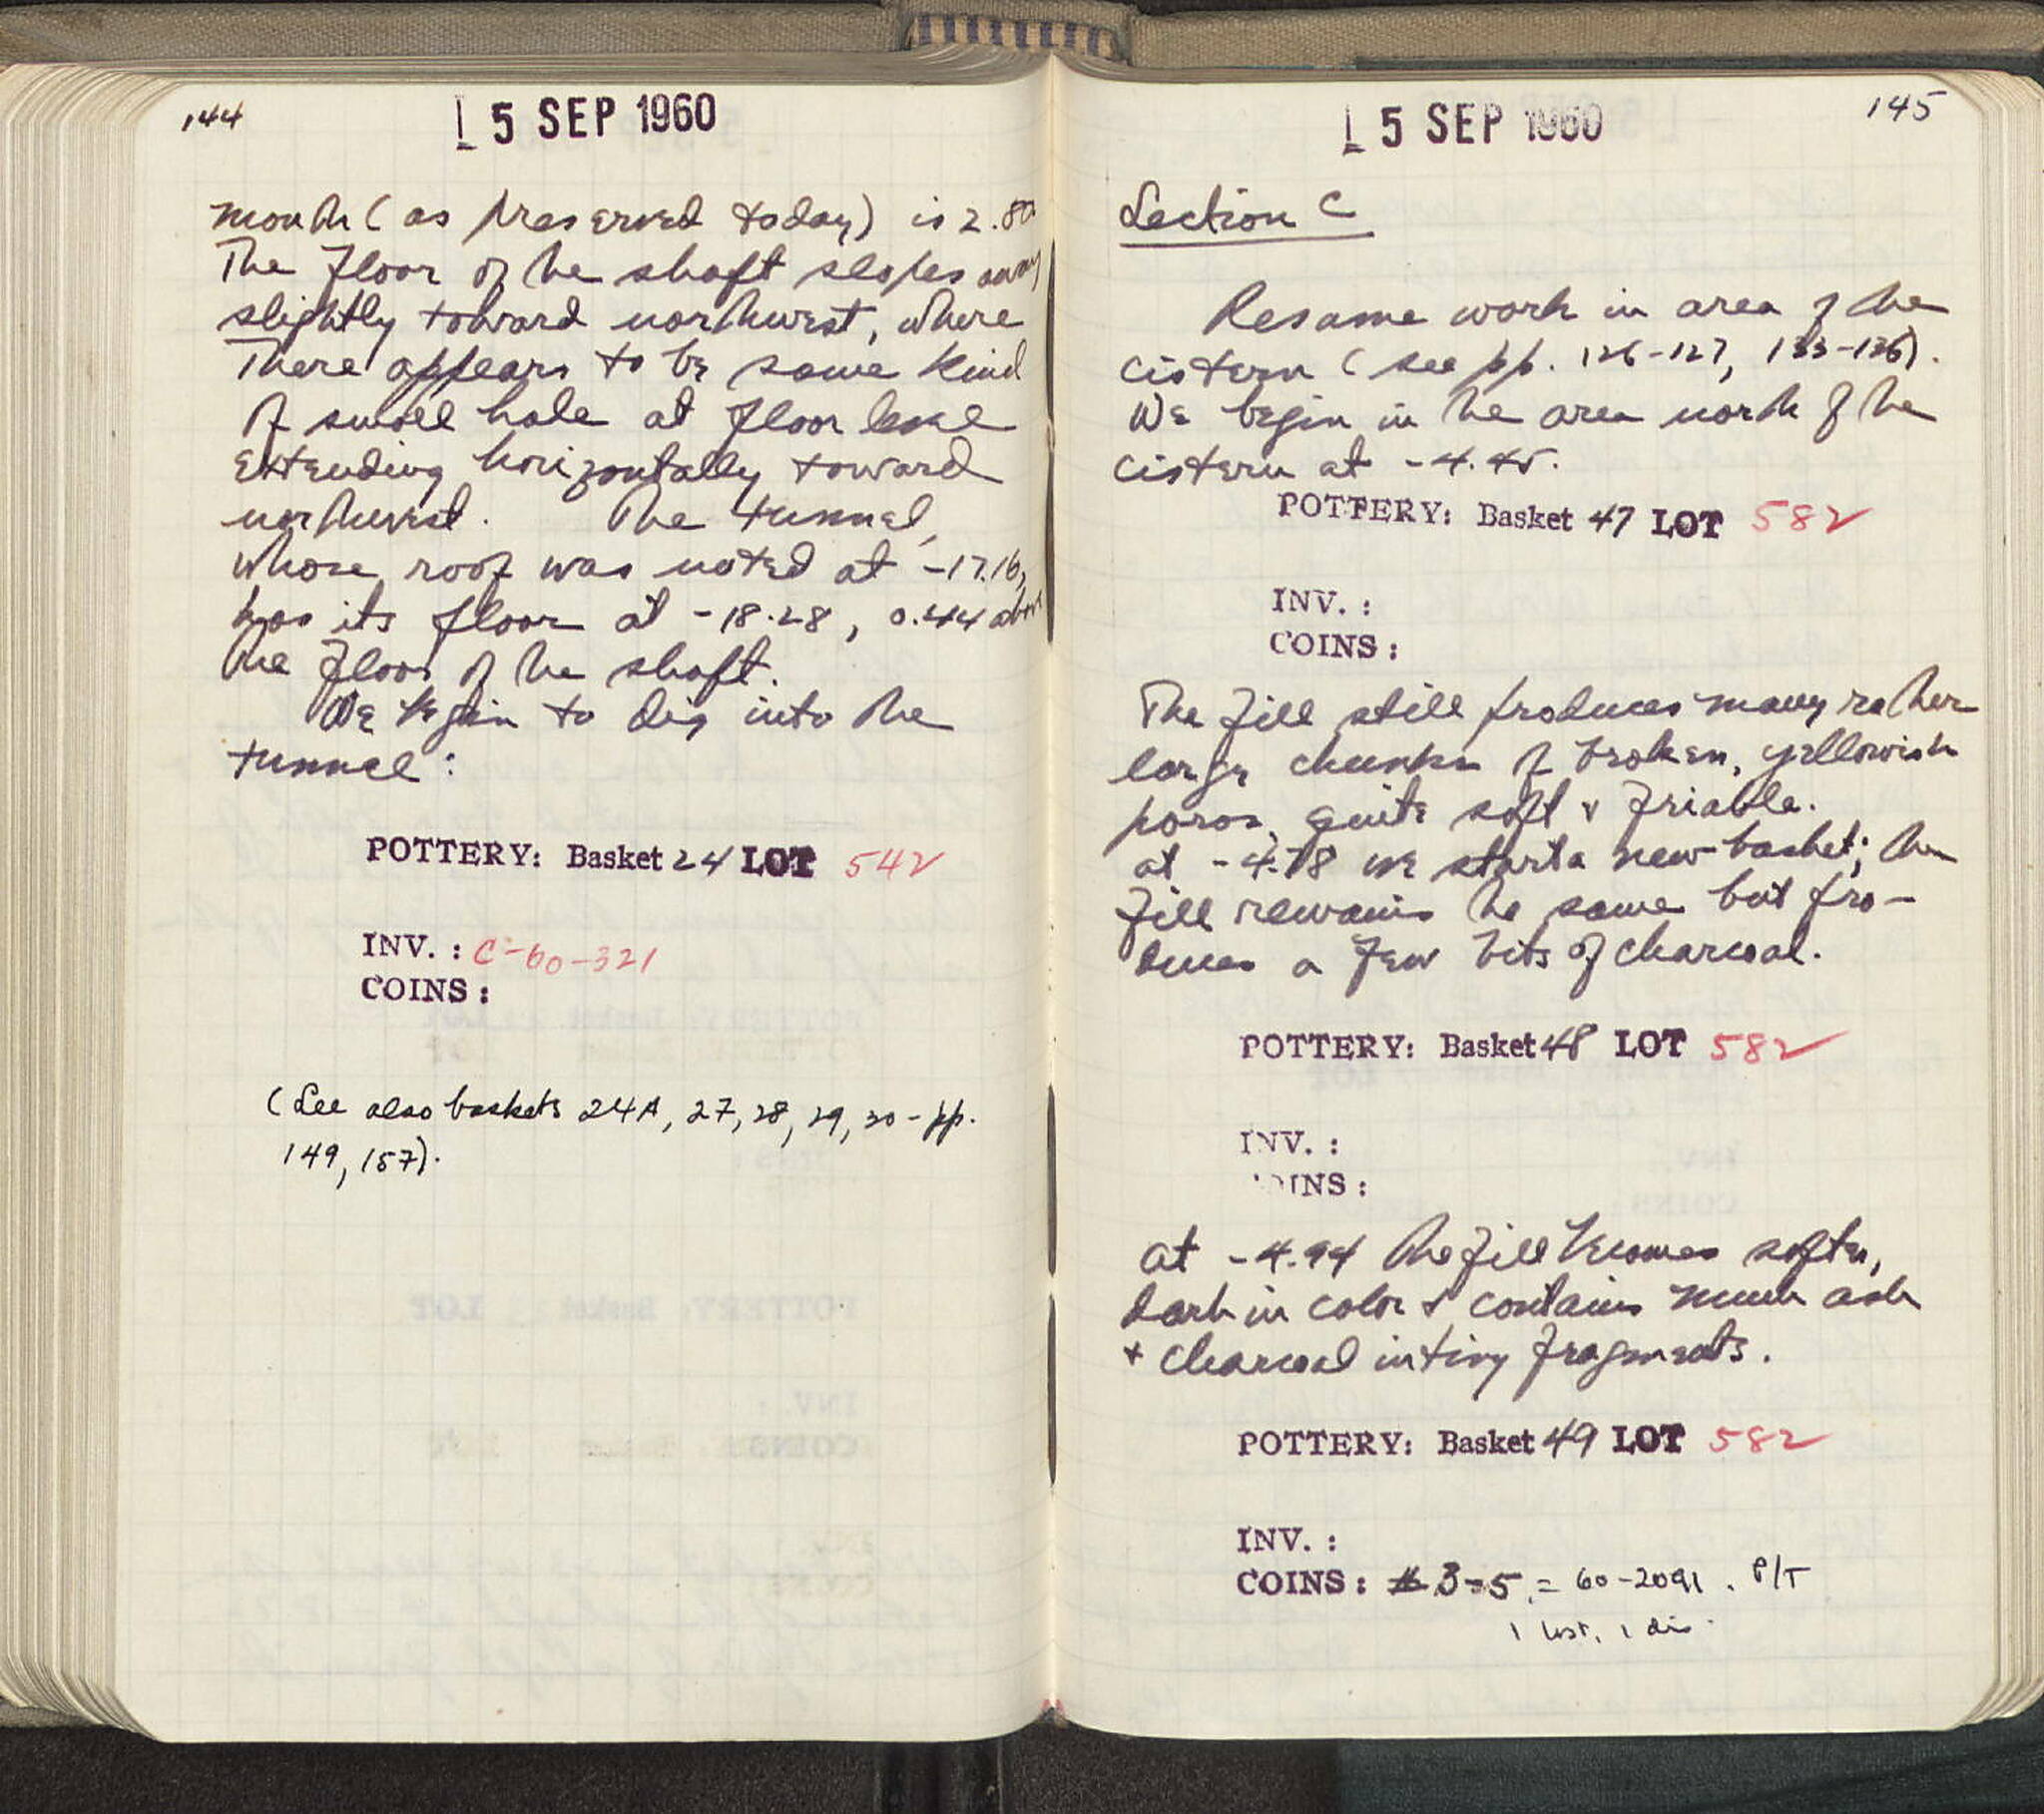 144
15 SEP 1960
mouth (as preserved today) is 2.80
The floor of the shaft slopes away
slightly toward northwest, where
there appears to be some kind
of small hole at floor level
extending horizontally toward
northwest. The tunnel,
whose roof was noted at -17.16,
has its floor at -18.28, 0.44 above
the floor of the shaft.
We begin to dig into the
tunnel:
POTTERY: Basket 24 LOT 542
INV. : C-60-321
COINS :
(See also baskets 24A, 27, 28, 29, 30 - pp.
149, 157).
145
15 SEP 1960
Section C
Resume work in area of the
cistern (see pp. 126-127, 133-136).
We begin in the area north of the
cistern at -4.45.
POTTERY: Basket 47 LOT 582
INV. :
COINS :
The fill still produces many rather
large chunks of broken, yellowish
poros, quite soft & friable.
at -4.78 we start a new basket; the
fill remains the same but pro-
duces a few bits of charcoal.
POTTERY: Basket 48 LOT 582
INV. :
COINS :
at -4.94 the fill becomes softer,
dark in color & contains much ash
+ charcoal in tiny fragments.
POTTERY: Basket 49 LOT 582
INV. :
COINS : # 3-5 = 60-2091. P/T
1 lost, 1 dis.